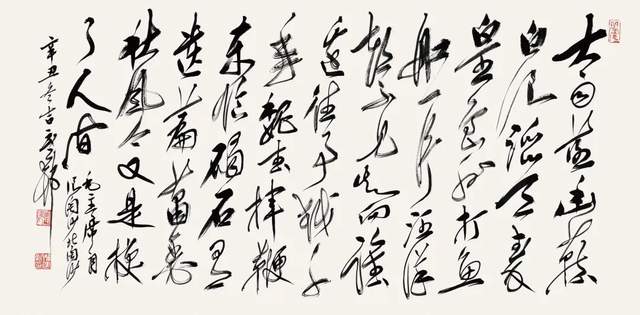 大雨落幽燕
白浪滔天秦
皇岛外打鱼
船一片汪洋
都不见知向谁
边往事越千
年魏武挥鞭
东临碣石有
遗篇萧瑟
秋风今又是换
了人间
毛主席
浪淘沙北
辛丑